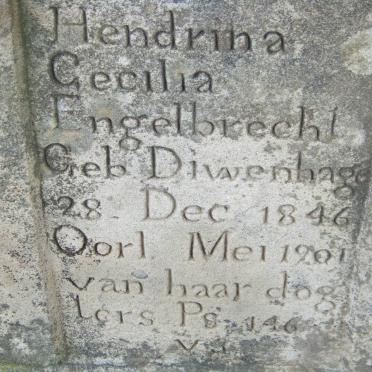 Hendrina
Cecilia
Engelbrecht
Geb Diwenhage
28 Dec 1846
Oorl Mei 1901
van haar dog
ters Ps 146
V